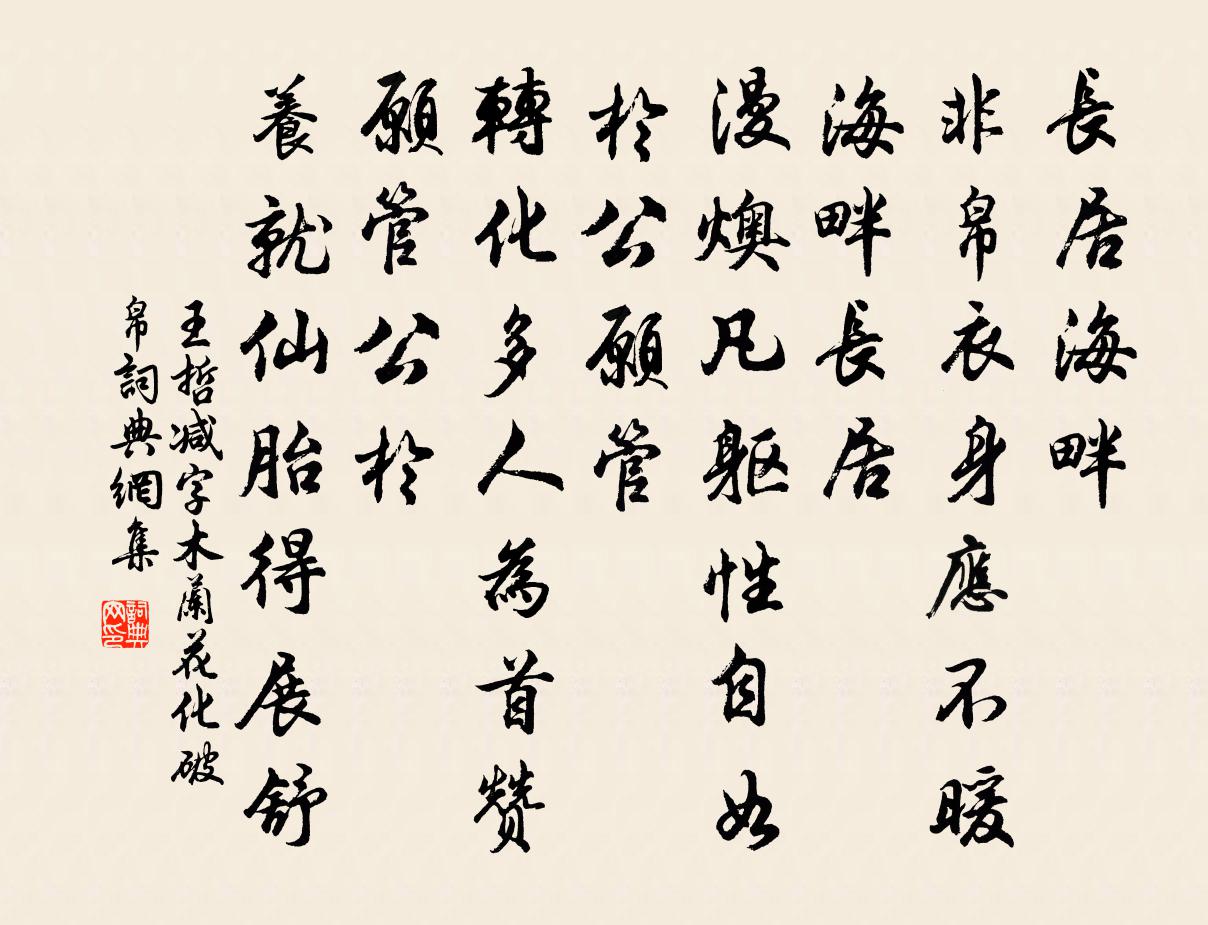 長居海畔
非帛衣身應不暖
海畔長居
漫燠凡軀性自如
於公願管
轉化多人為首贊
願管公於
養就仙胎得展舒
王哲减字木蘭花化破
帛詞典網集
詞典网印